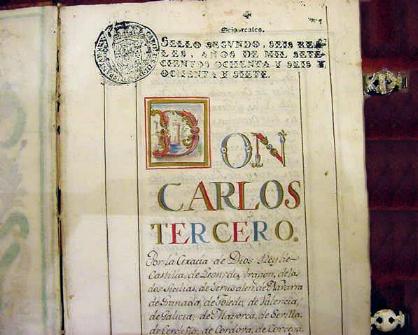 Seis reales.
SELLO SEGVNDO, SEIS REA
LES, AÑOS DE MIL SETE
CIENTOS OCHENTA Y SEIS Y
OCHENTA Y SIETE.
DON
CARLOS
TERCERO.
Por la Gracia de Dios, Rey de
Castilla, de Leon, de Aragon, de las
dos Sicilias, de Jerusalen, de Navarra
de Granada, de Toledo, de Valencia,
de Galicia, de Mallorca, de Sevilla,
de Cerdeña, de Cordova, de Corcega